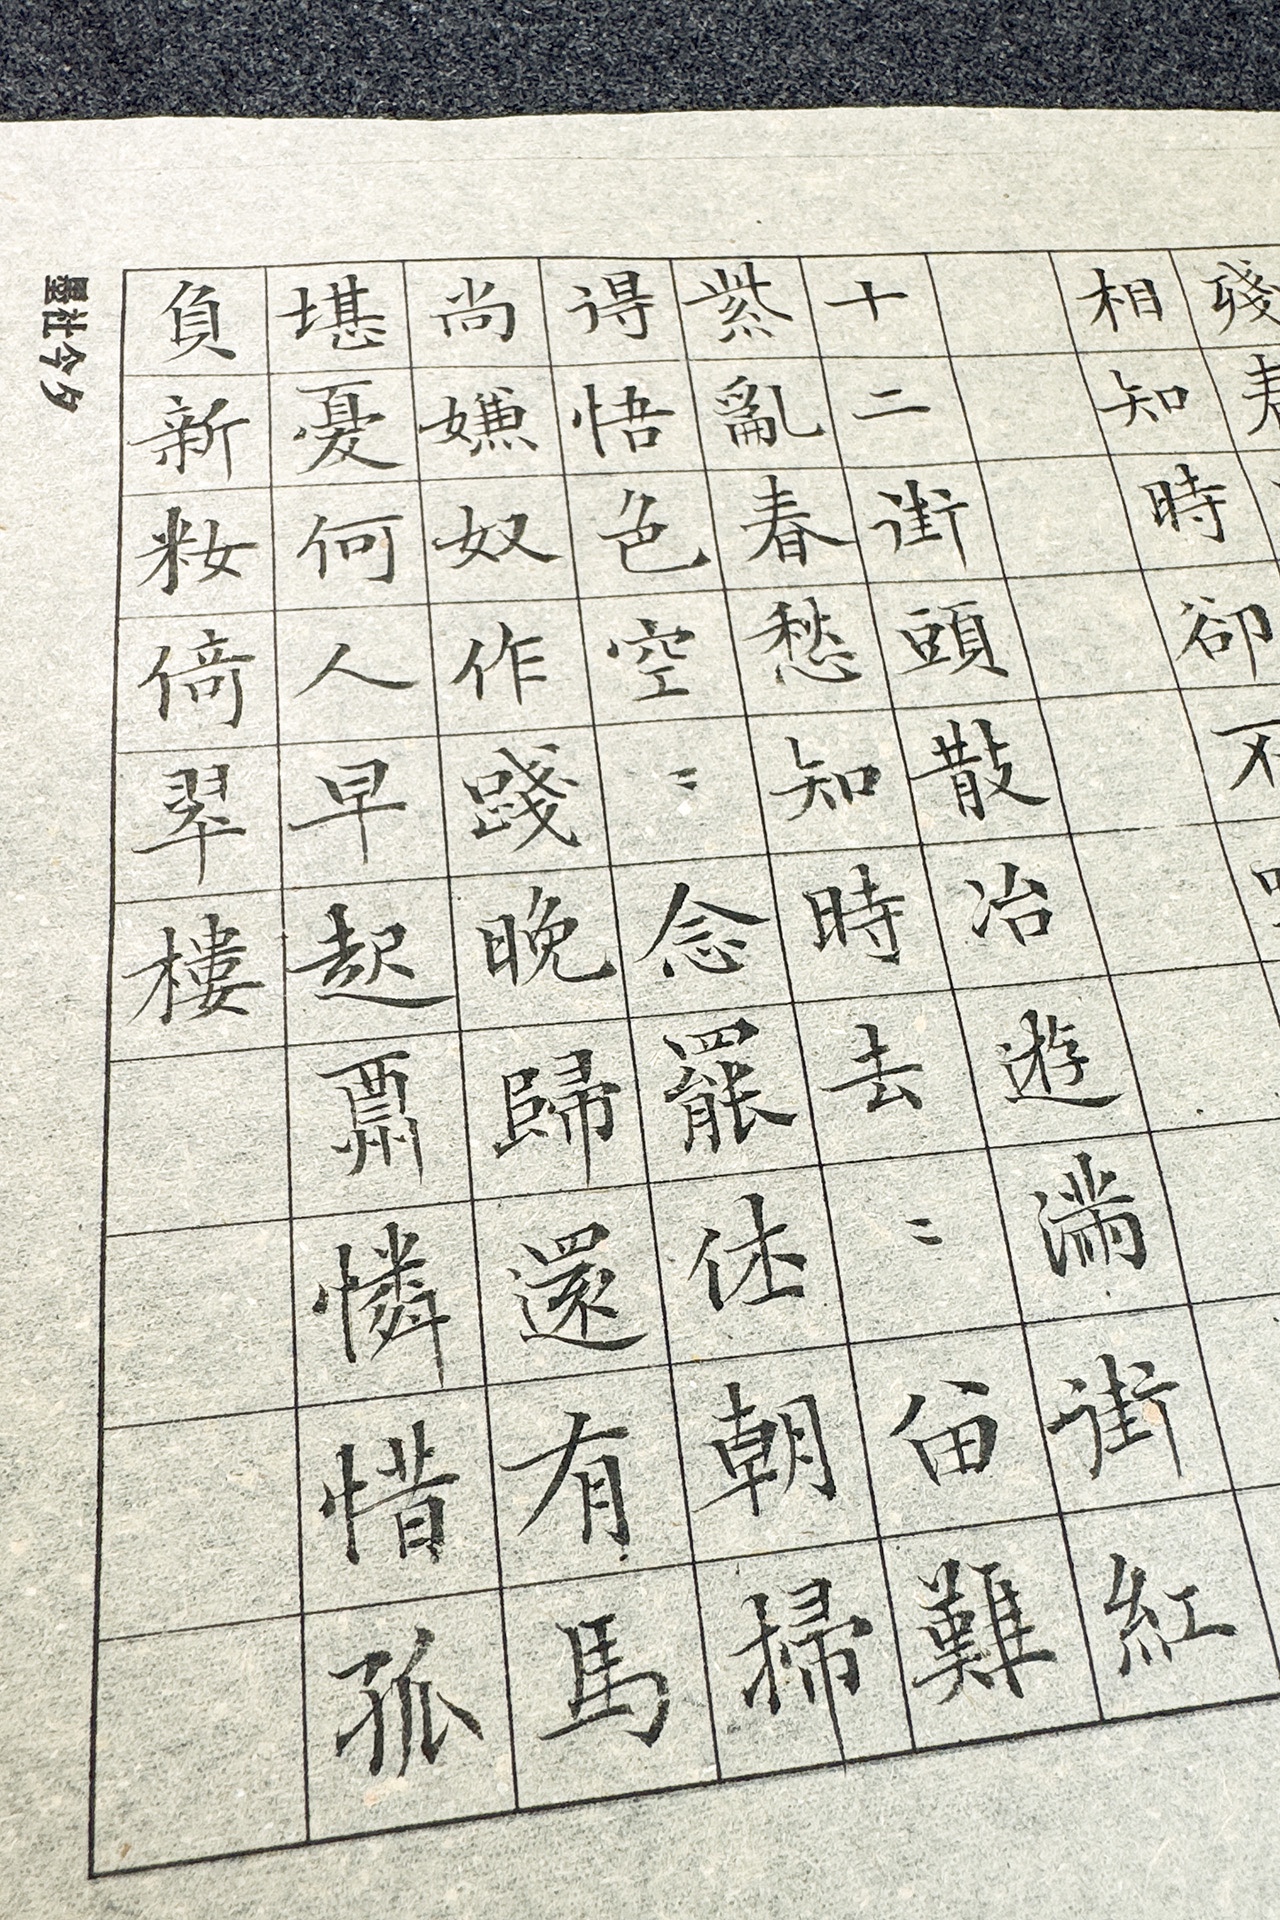 殘春
相知時卻不
十二街頭散冶遊滿街紅
紫亂春愁知時去〻留難
得悟色空〻念罷休朝掃
尚嫌奴作踐晚歸還有馬
堪憂何人早起酬憐惜孤
負新妝倚翠樓